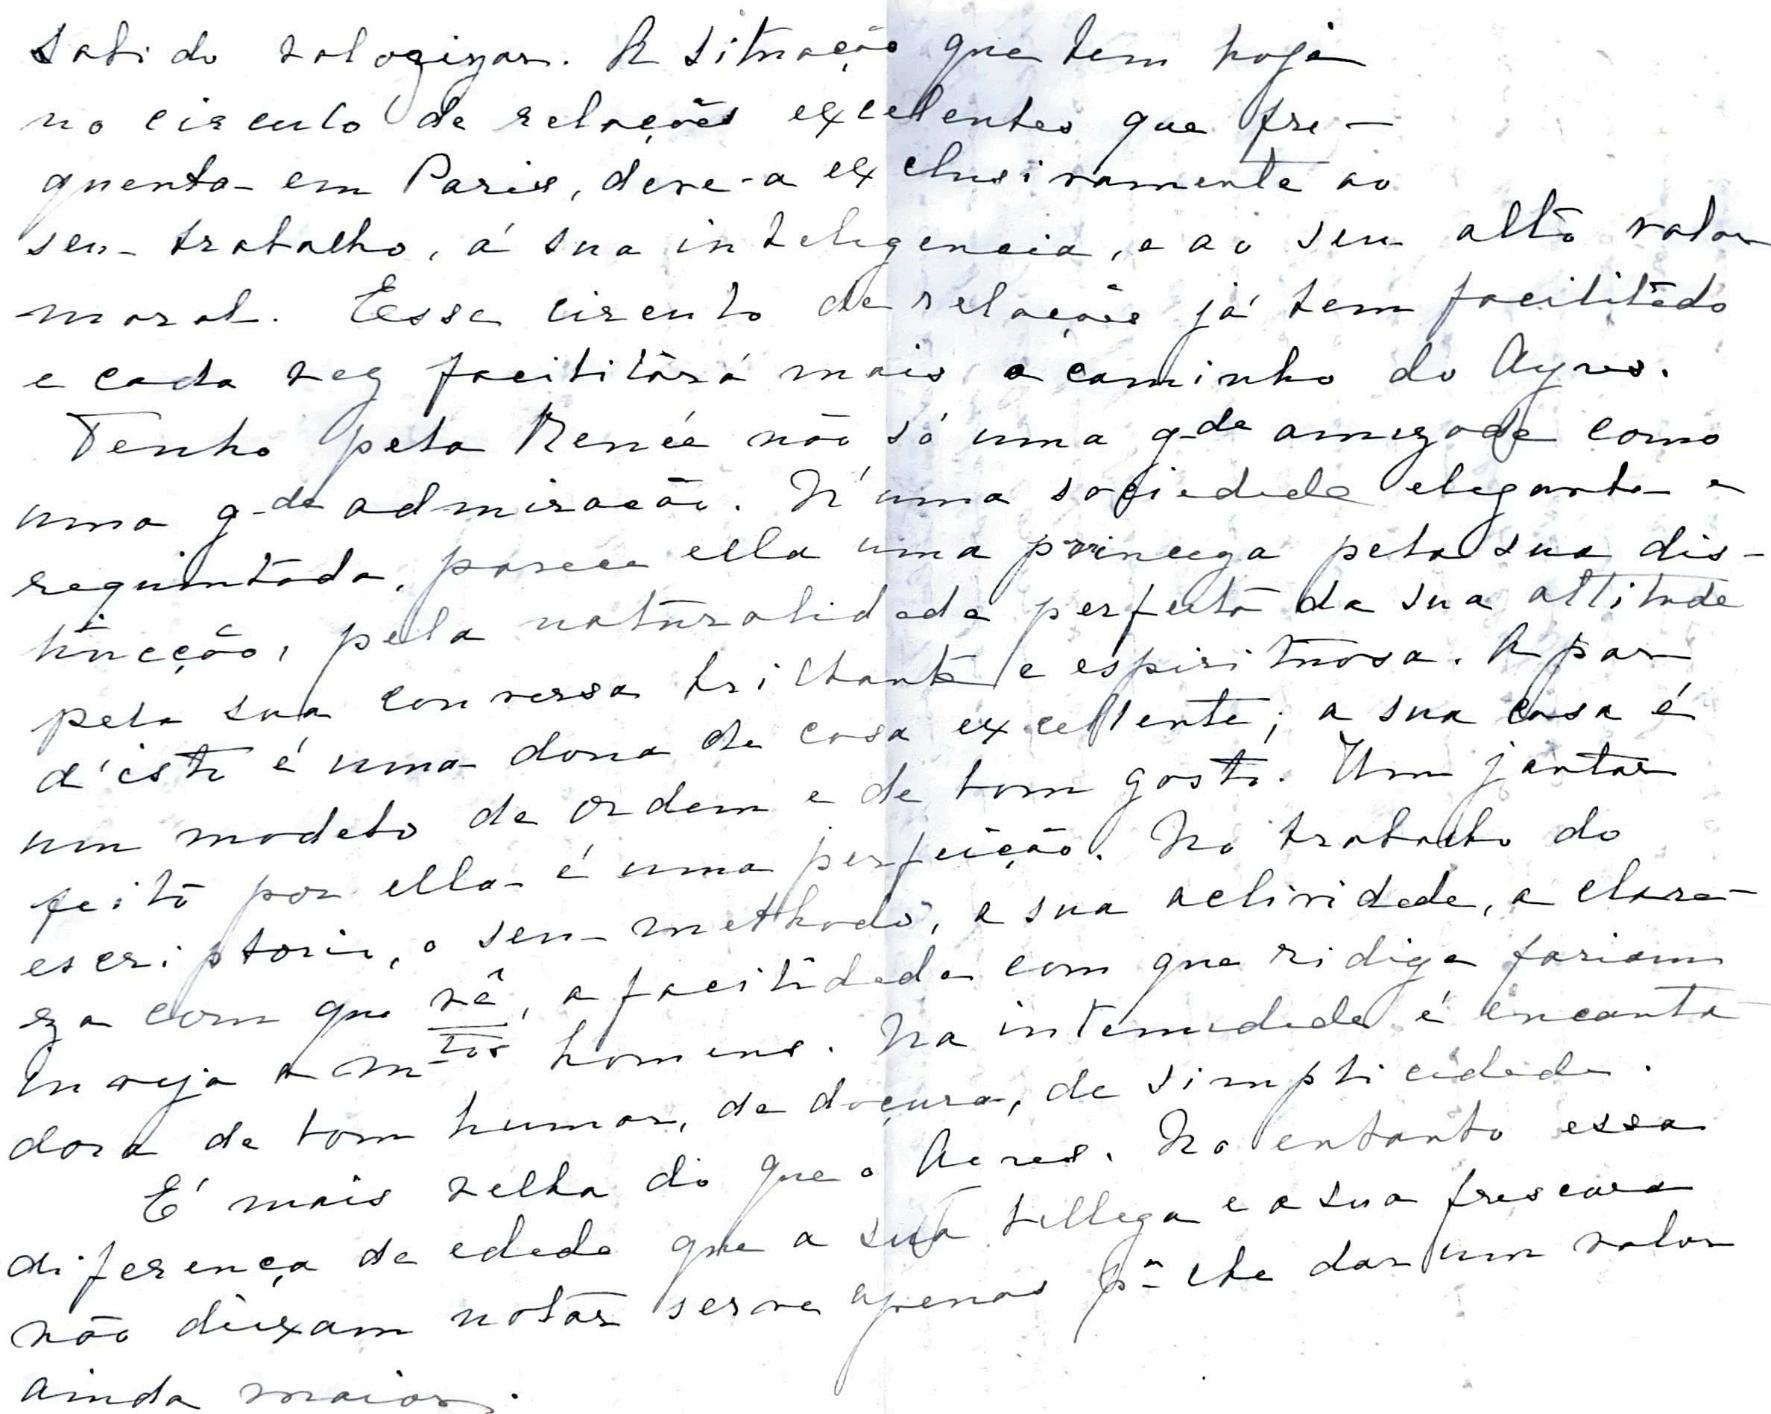 sabido valorizar. A situação que tem hoje
no circulo de relações excelentes que fre-
quenta em Paris, deve-a exclusivamente ao
seu trabalho, á sua inteligencia, e ao seu alto valor
moral. Esse circulo de relações já tem facilitado
e cada vez facilitará mais o caminho do Ayres.
Tenho pela Renée não só uma gde amizade como
uma gde admiração. N'uma sociedade elegante e
requintada, parece ella uma princeza pela sua dis-
tincção, pela naturalidade perfeita da sua attitude
pela sua conversa brilhante e espirituosa. A par
d'isto é uma dona de casa excellente; a sua casa é
um modelo de ordem e de bom gosto. Um jantar
feito por ella é uma perfeição. No trabalho do
escriptorio, o seu methodo, a sua actividade, a clare-
za com que vê, a facilidade com que ridige fariam
inveja a mtos homens. Na intemidade é encanta
dora de bom humor, de doçura, de simplicidade.
É mais velha do que o Aeres. No entanto essa
diferença de edade que a sua belleza e a sua frescura
não deixam notar serve apenas pª lhe dar um valor
ainda maior.